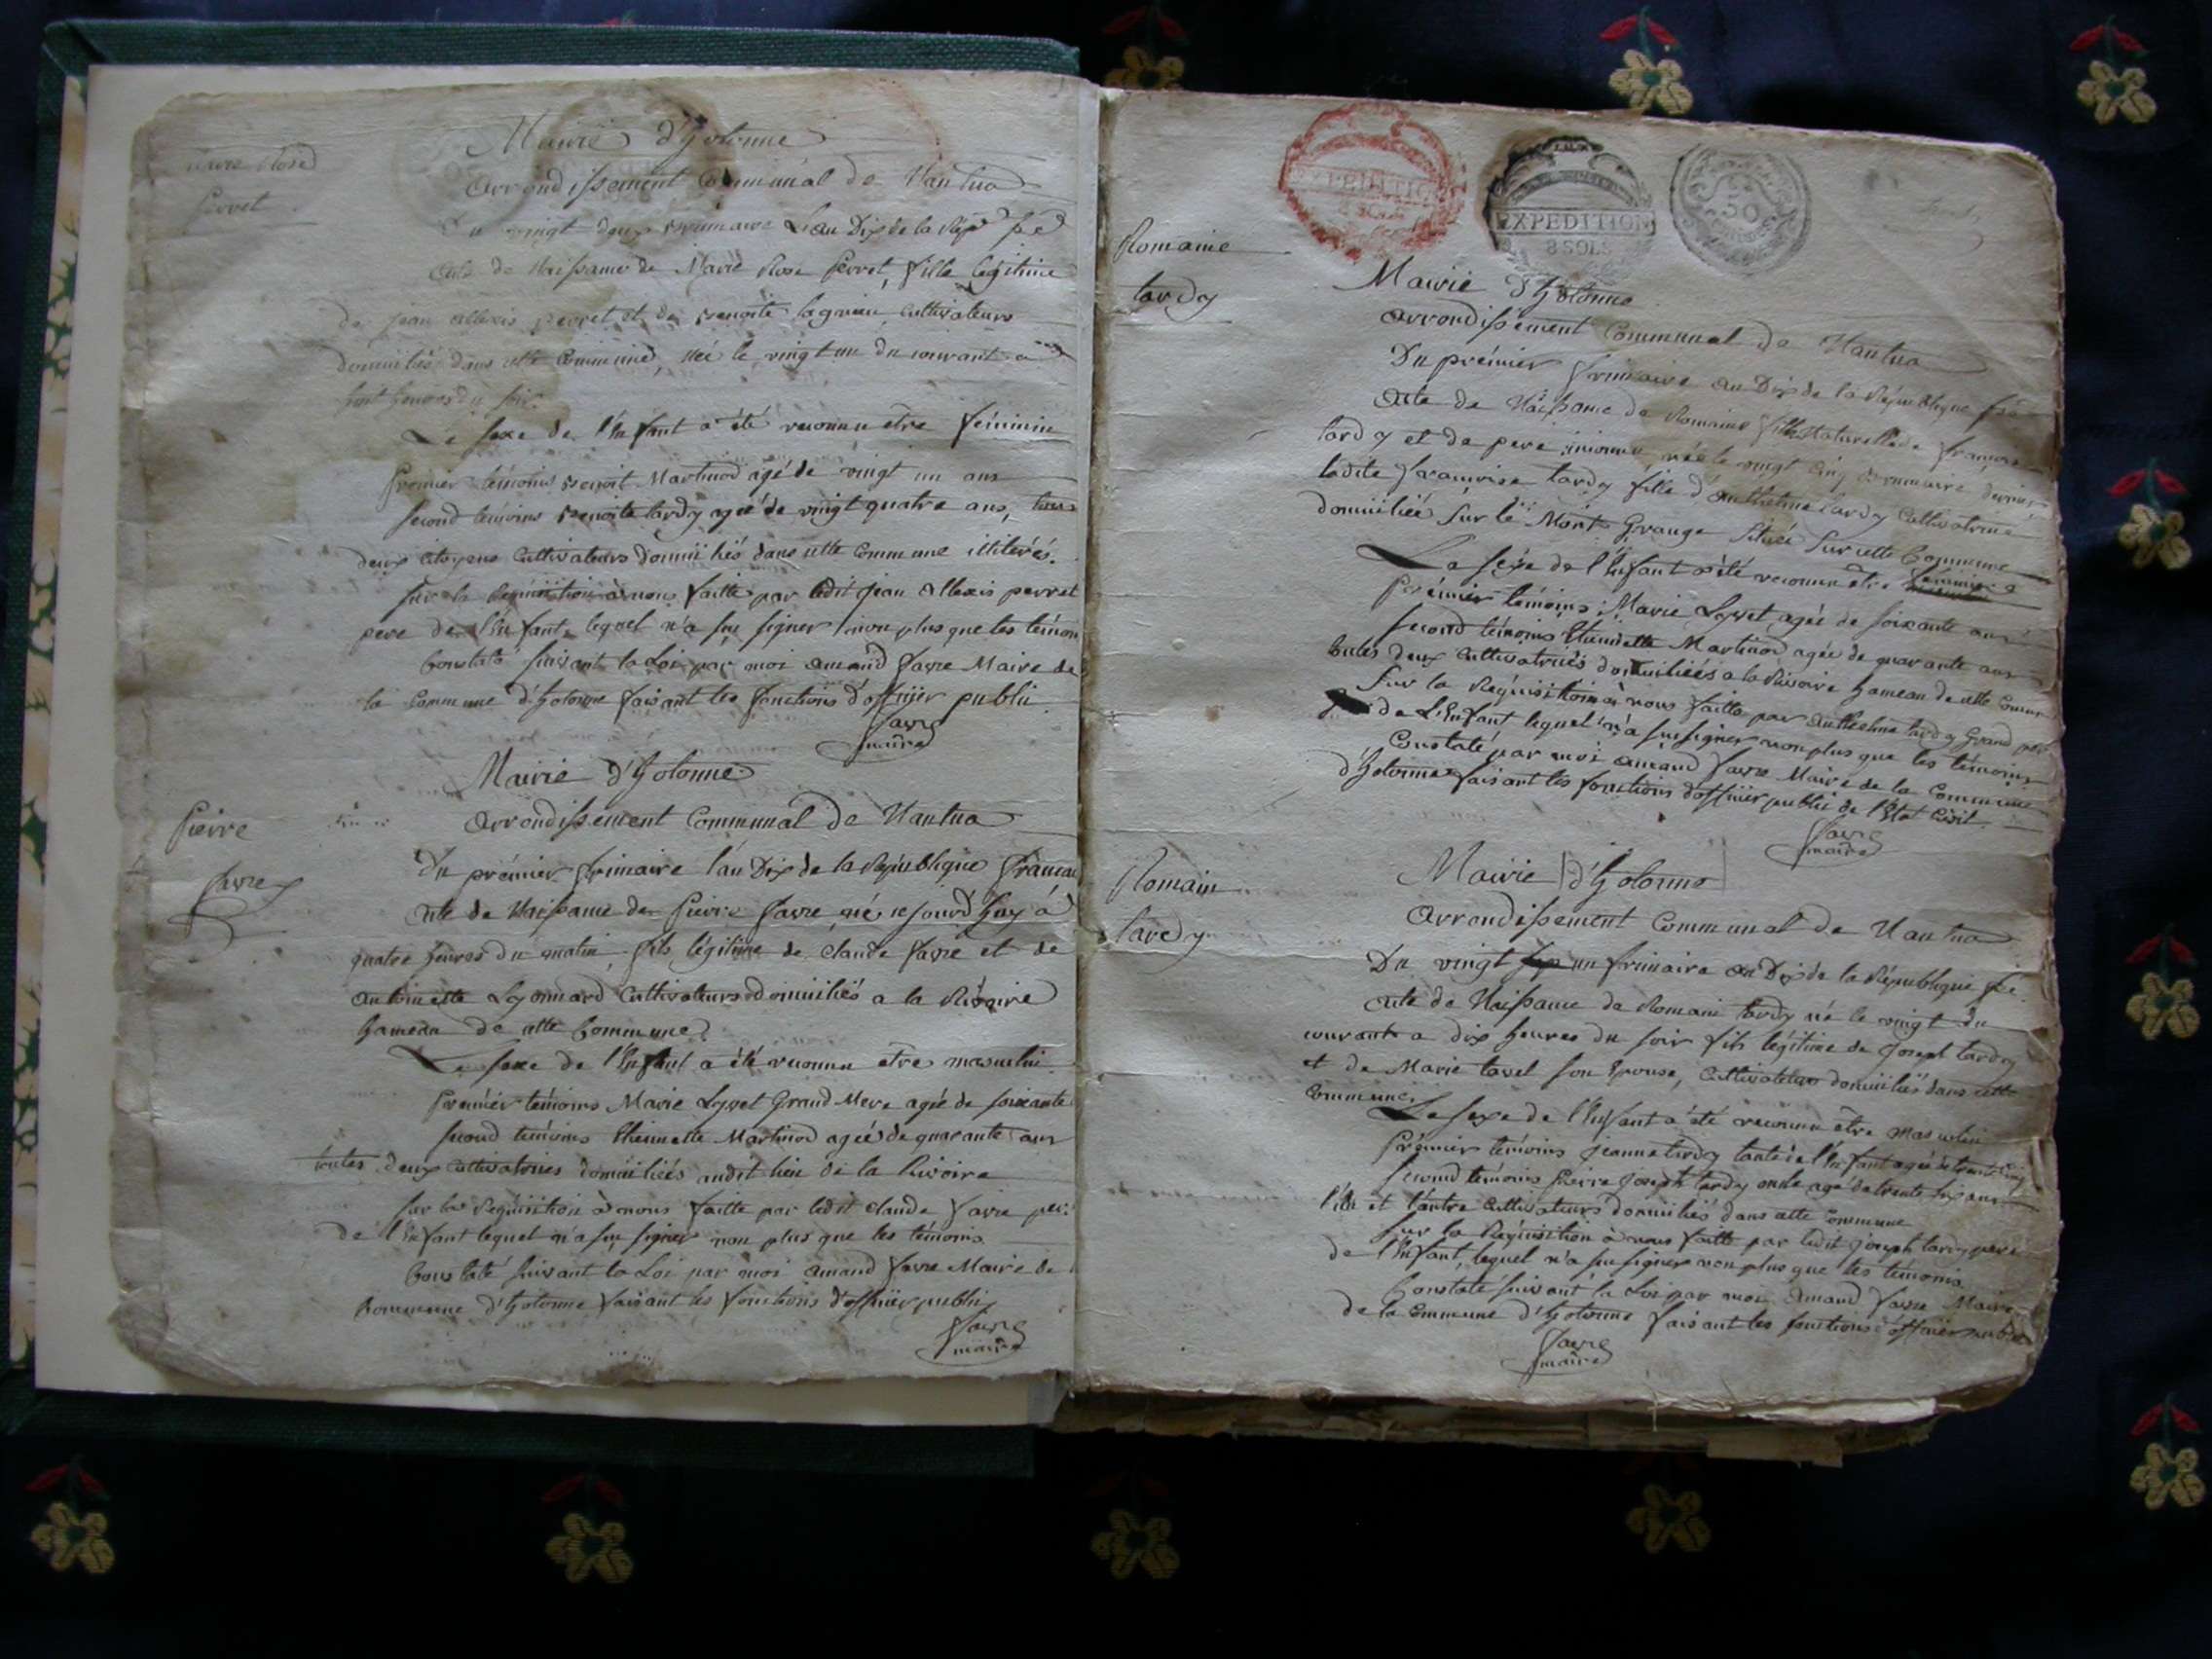 Marie Rose
perret
Mairie d'Izolonne
Arrondissement Communal de Nantua
Du vingt deux Brumaire L'an Dix de la Rép
Acte de Naissance de Marie Rose perret, fille légitime
de jean allexis perret et de Benoite lagnieu, Cultivateurs
domiciliés dans cette Commune, née le vingt un du courant a
huit heures du soir.
Le sexe de l'Enfant a été reconnu etre féminin
Premier témoins Benoit Martinod agé de vingt un ans
second témoins Benoite tardy agée de vingt quatre ans, tous
deux citoyens Cultivateurs domiciliés dans cette Commune illiterés.
sur la Réquisition à nous faitte par ledit jean allexis perret
pere de l'Enfant, lequel n'a su signer non plus que les témoin
Constaté suivant la Loi par moi amand favre Maire de
la Commune d'Izolonne faisant les fonctions d'officier public
favre
maire
Mairie d'Izolonne
Pierre
favre
Arrondissement Communal de Nantua
Du prémier frimaire l'an Dix de la République francai
Acte de Naissance de Pierre favre, né cejourd'huy à
quatre heures du matin, fils légitime de Claude favre et de
antoinette Lyonnard Cultivateurs domiciliés a la Rivoire
hameau de cette Commune.
Le sexe de l'Enfant a été reconnu etre masculin.
Premiér témoins Marie Lyvet Grand Mere agée de soixante
second témoins Ethiennette Martinod agée de quarante ans
toutes deux cultivatrices domiciliés audit lieu de la Rivoire
sur la Réquisition à nous faitte par ledit Claude favre pere
de l'Enfant lequel n'a su signer non plus que les témoins
Constaté suivant la Loi par moi amand favre Maire de
Commune d'Izolonne faisant les fonctions d'officier public
favre
maire
EXPEDITION
8 SOLS
EXPEDITION
8 SOLS
50
Romaine
tardy
Mairie d'Izolonne
Arrondissement Communal de Nantua
Du prémier frimaire an Dix de la République
Acte de Naissance de Romaine fille Naturelle de francoise
tardy et de pere inconnu, née le vingt cinq Brumaire dernier
ladite francoise tardy fille d'anthelme tardy Cultivatrice
domiciliée sur le Mont Grange située sur cette Commune
Le sexe de l'Enfant a été reconnu etre féminin
Prémier témoins Marie Lyvet, agée de soixante ans
second témoins Ethiennette Martinod agée de quarante ans
toutes deux Cultivatrices domiciliées a la Rivoire hameau de cette Commune
sur la Réquisition à nous faitte par anthelme tardy Grand per
de L'Enfant lequel n'a su signer non plus que les témoins
Constaté par moi amand favre Maire de la Commune
d'Izolonne faisant les fonctions d'officier public de l'Etat Civil
favre
maire
Romain
tardy
Mairie d'Izolonne
Arrondissement Communal de Nantua
Du vingt un frimaire an Dix de la République
Acte de Naissance de Romain tardy né le vingt du
courant a dix heures du soir fils légitime de Joseph tardy
et de Marie tavel son Epouse, Cultivateurs domiciliés dans cette
Commune.
Le sexe de l'Enfant a été reconnu etre Masculin
Prémier témoins jeanne tardy tante de l'Enfant agée de trente cinq
second témoins Pierre joseph tardy oncle agé de trente six ans
l'un et l'autre Cultivateurs domiciliés dans cette Commune
sur la Réquisition à nous faitte par ledit joseph tardy pere
de l'Enfant, lequel n'a su signer non plus que les témoins
Constaté suivant la Loi par moi amand favre Maire
de la Commune d'Izolonne faisant les fonctions d'officier public
favre
maire